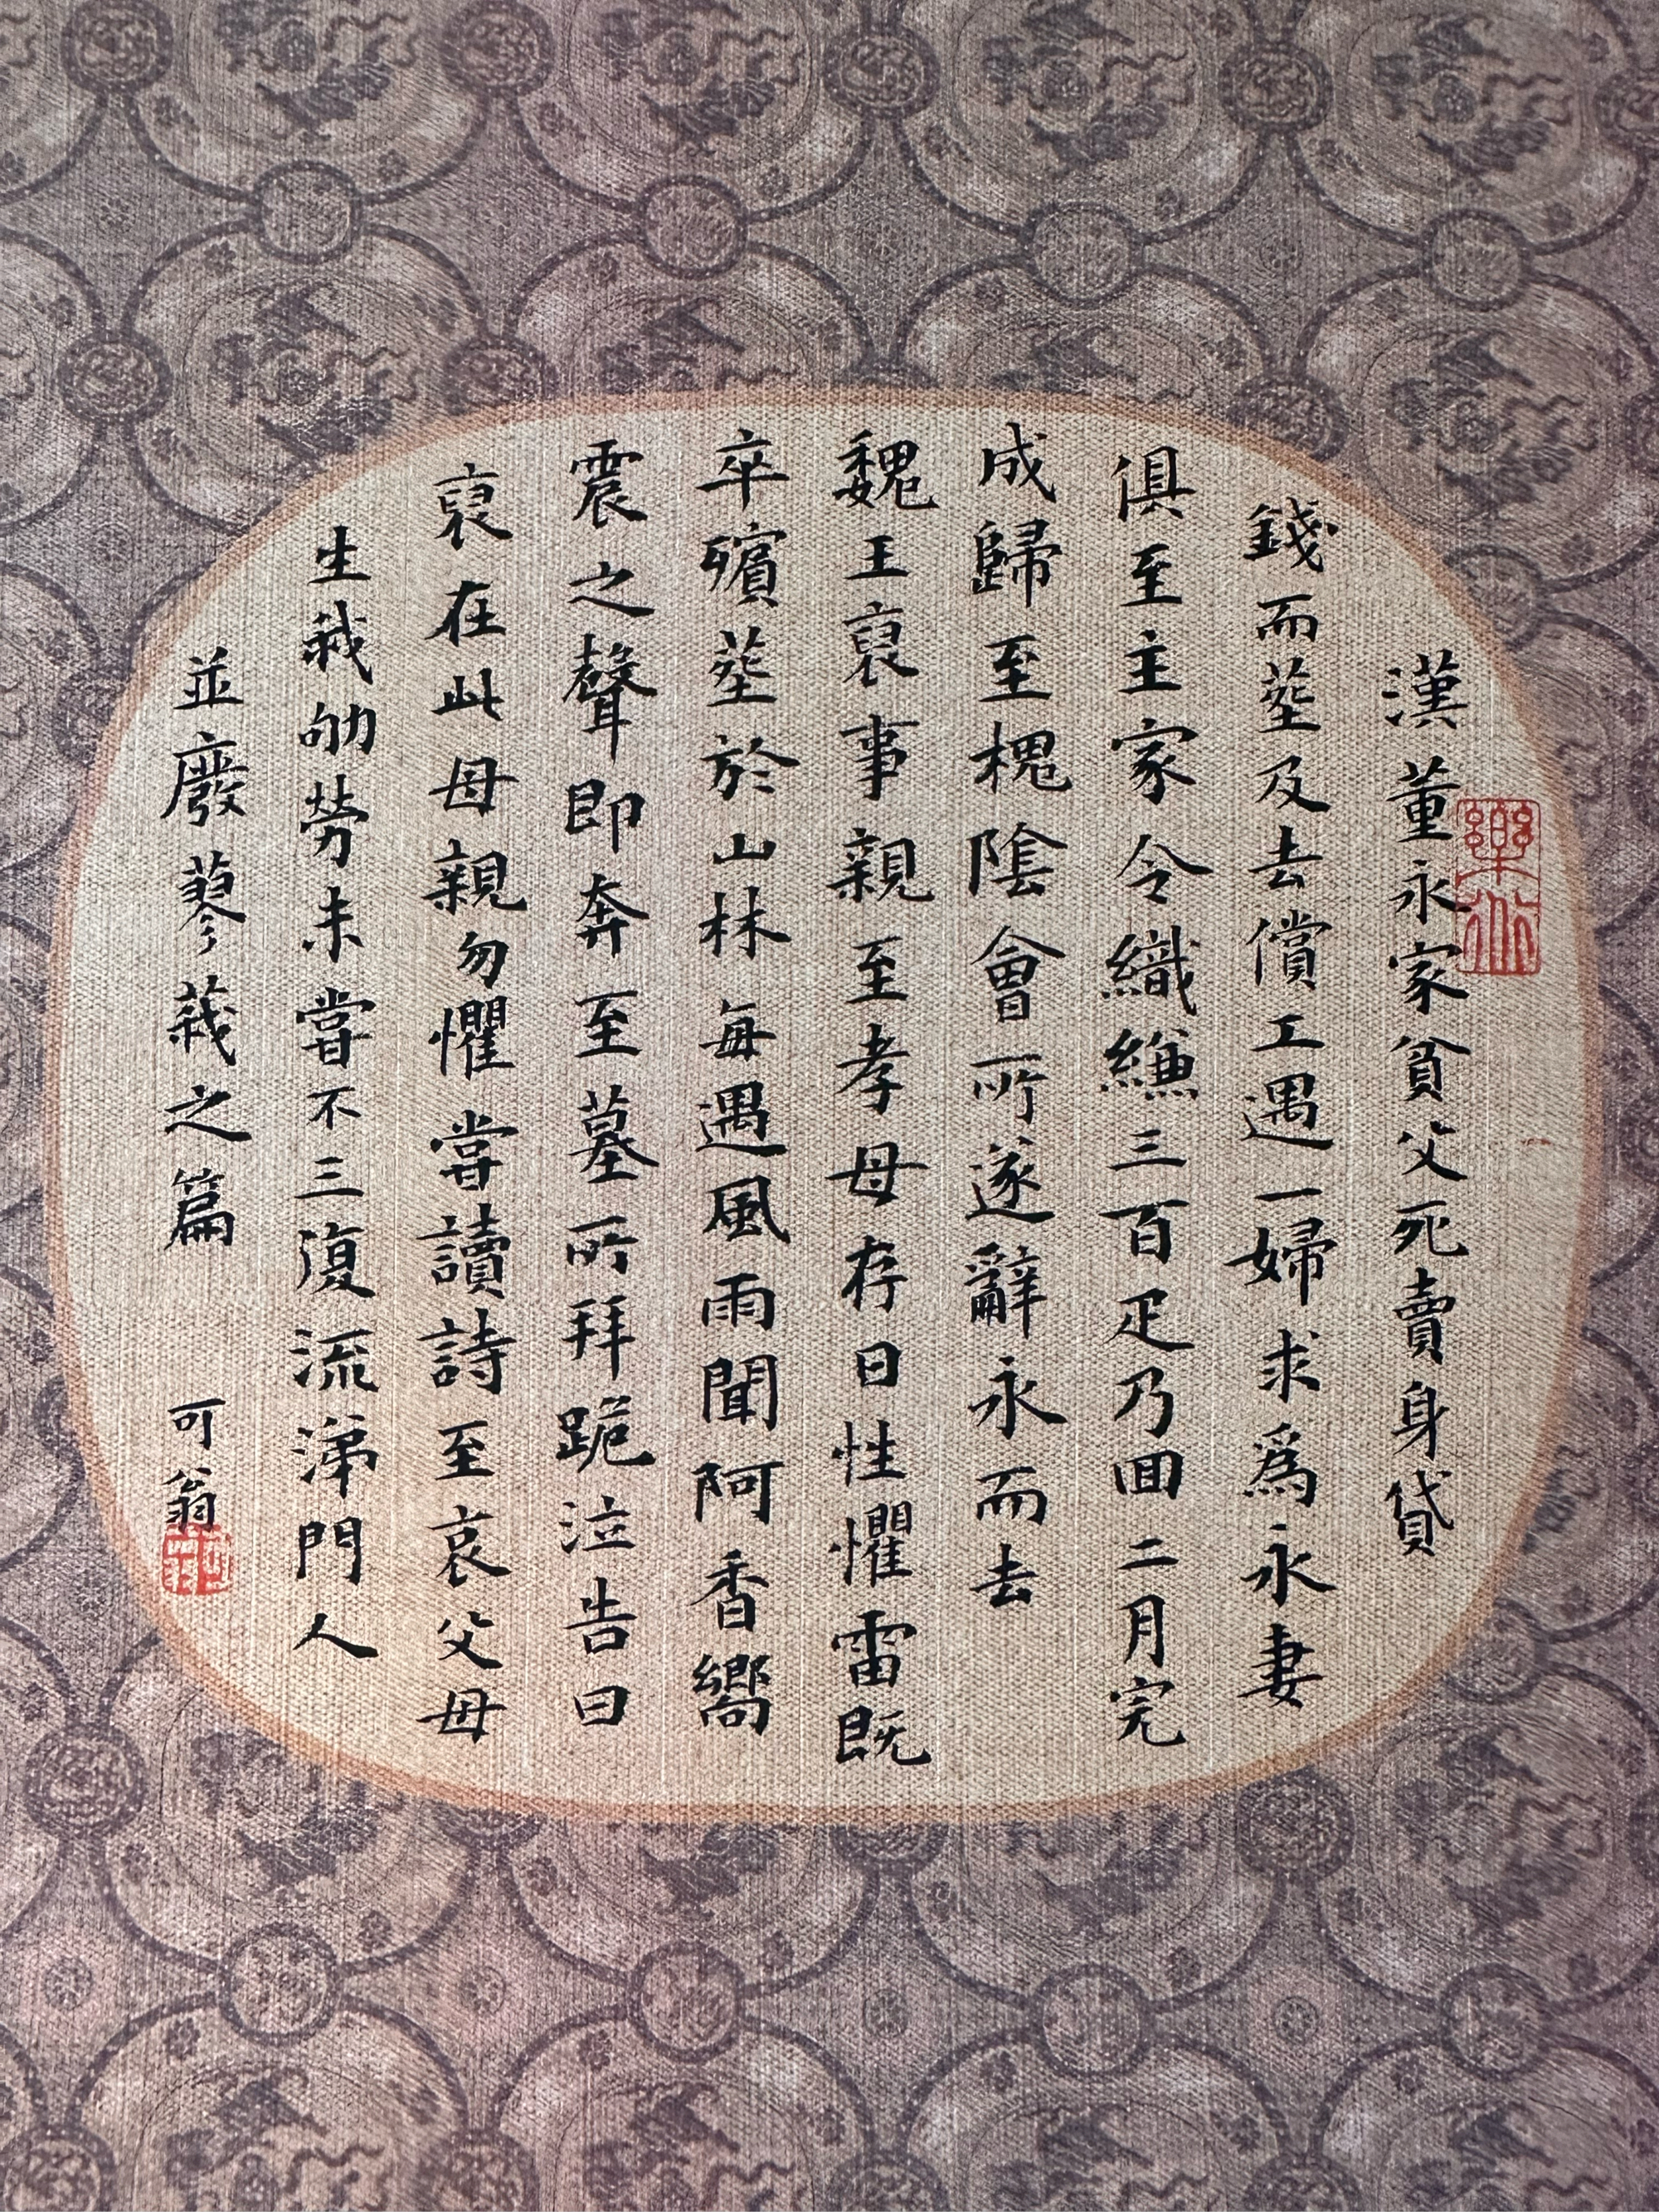 漢董永家貧父死賣身貸
錢而塟及去償工遇一婦求為永妻
俱至主家令織縑三百疋乃回二月完
成歸至槐陰會所遂辭永而去
魏王裒事親至孝母存日性懼雷既
卒殯塟於山林每遇風雨聞阿香嚮
震之聲即奔至墓所拜跪泣告曰
裒在此母親勿懼甞讀詩至哀父母
生我劬勞未甞不三復流涕門人
並廢蓼莪之篇
可翁